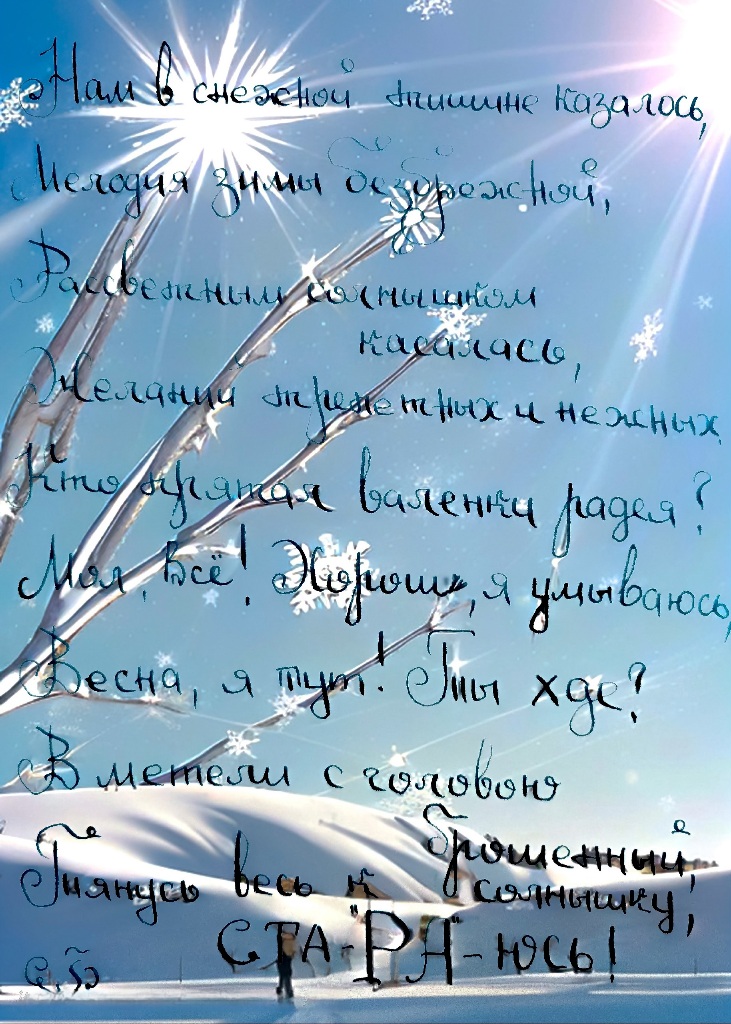 Нам в снежной тишине казалось,
Мелодия зимы безбрежной,
Рассветным солнышком
касалась,
Желаний трепетных и нежных
Кто прятал валенки радея?
Мол, всё! Хорош, я умываюсь,
Весна, я тут! Ты хде?
В метели с головою
брошенный,
Тянусь весь к солнышку,
СТА-"РА"-юсь!
С.Б